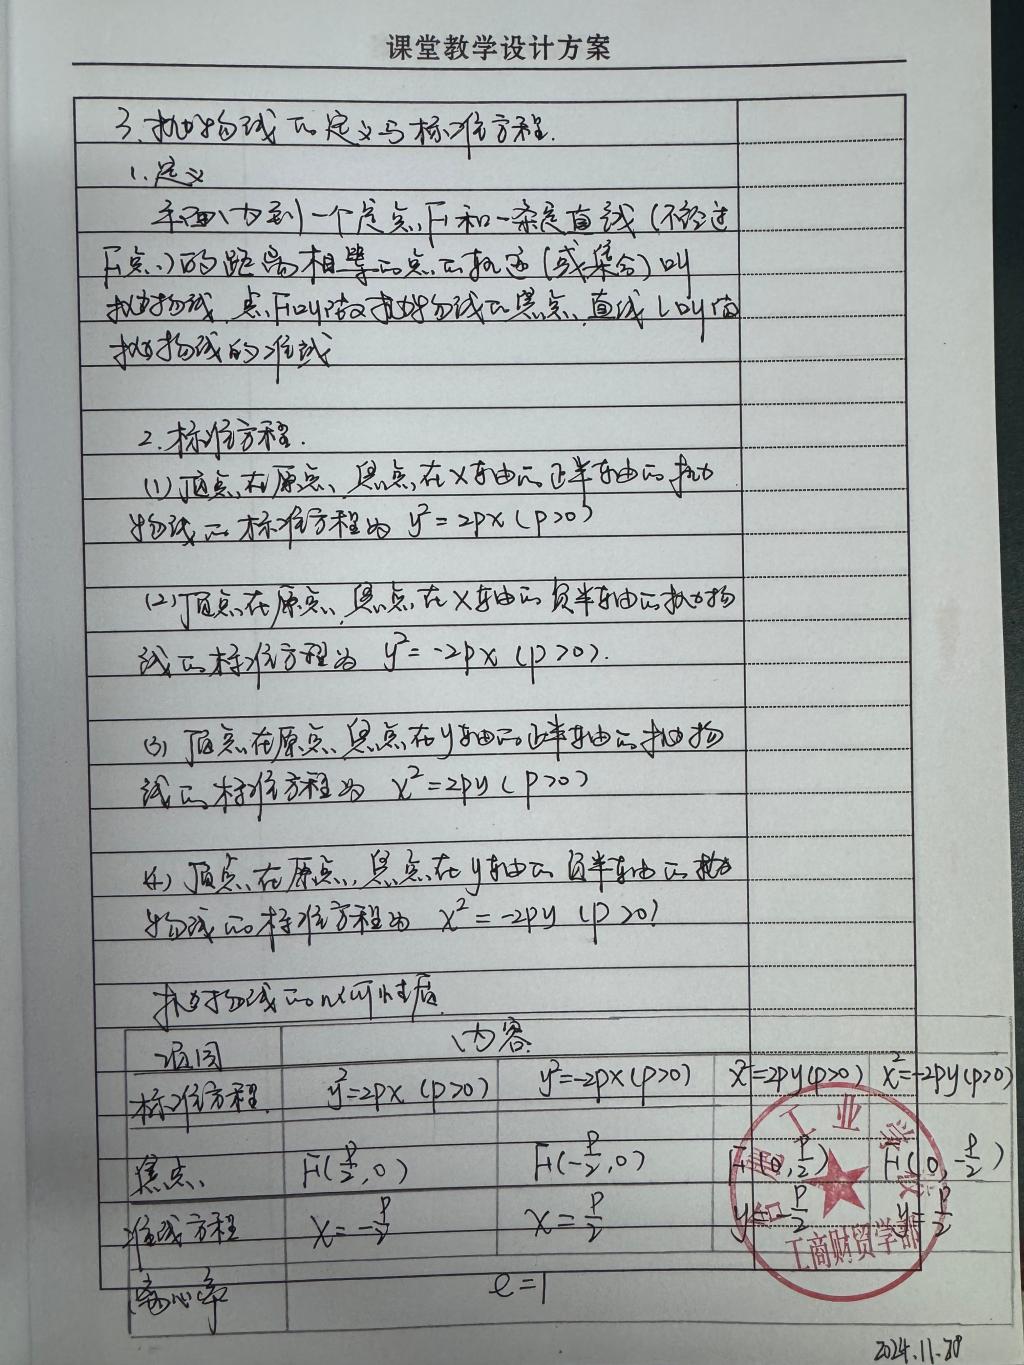 课堂教学设计方案
3.抛物线的定义与标准方程.
1.定义
平面内到一个定点F和一条定直线(不经过
F点)的距离相等的点的轨迹(或集合)叫
抛物线.点F叫做抛物线的焦点,直线l叫做
抛物线的准线
2.标准方程.
(1)顶点在原点,焦点在x轴的正半轴的抛
物线的标准方程为 y²=2px(p>0)
(2)顶点在原点,焦点在x轴的负半轴的抛物
线的标准方程为 y²=-2px (p>0).
(3) 顶点在原点,焦点在y轴的正半轴的抛物
线的标准方程为 x²=2py(p>0)
(4) 顶点在原点,焦点在y轴的负半轴的抛
物线的标准方程为 x²=-2py (p>0)
抛物线的几何性质.
内容
标准方程. y²=2px (p>0) y²=-2px(p>0) x²=2py(p>0) x²=-2py(p>0)
焦点 F(p/2,0) F(-p/2,0) F(0,p/2) F(0,-p/2)
准线方程 x=-p/2 x=p/2 y=-p/2 y=p/2
离心率 e=1
工业学校
工商财贸学部
2024.11.20